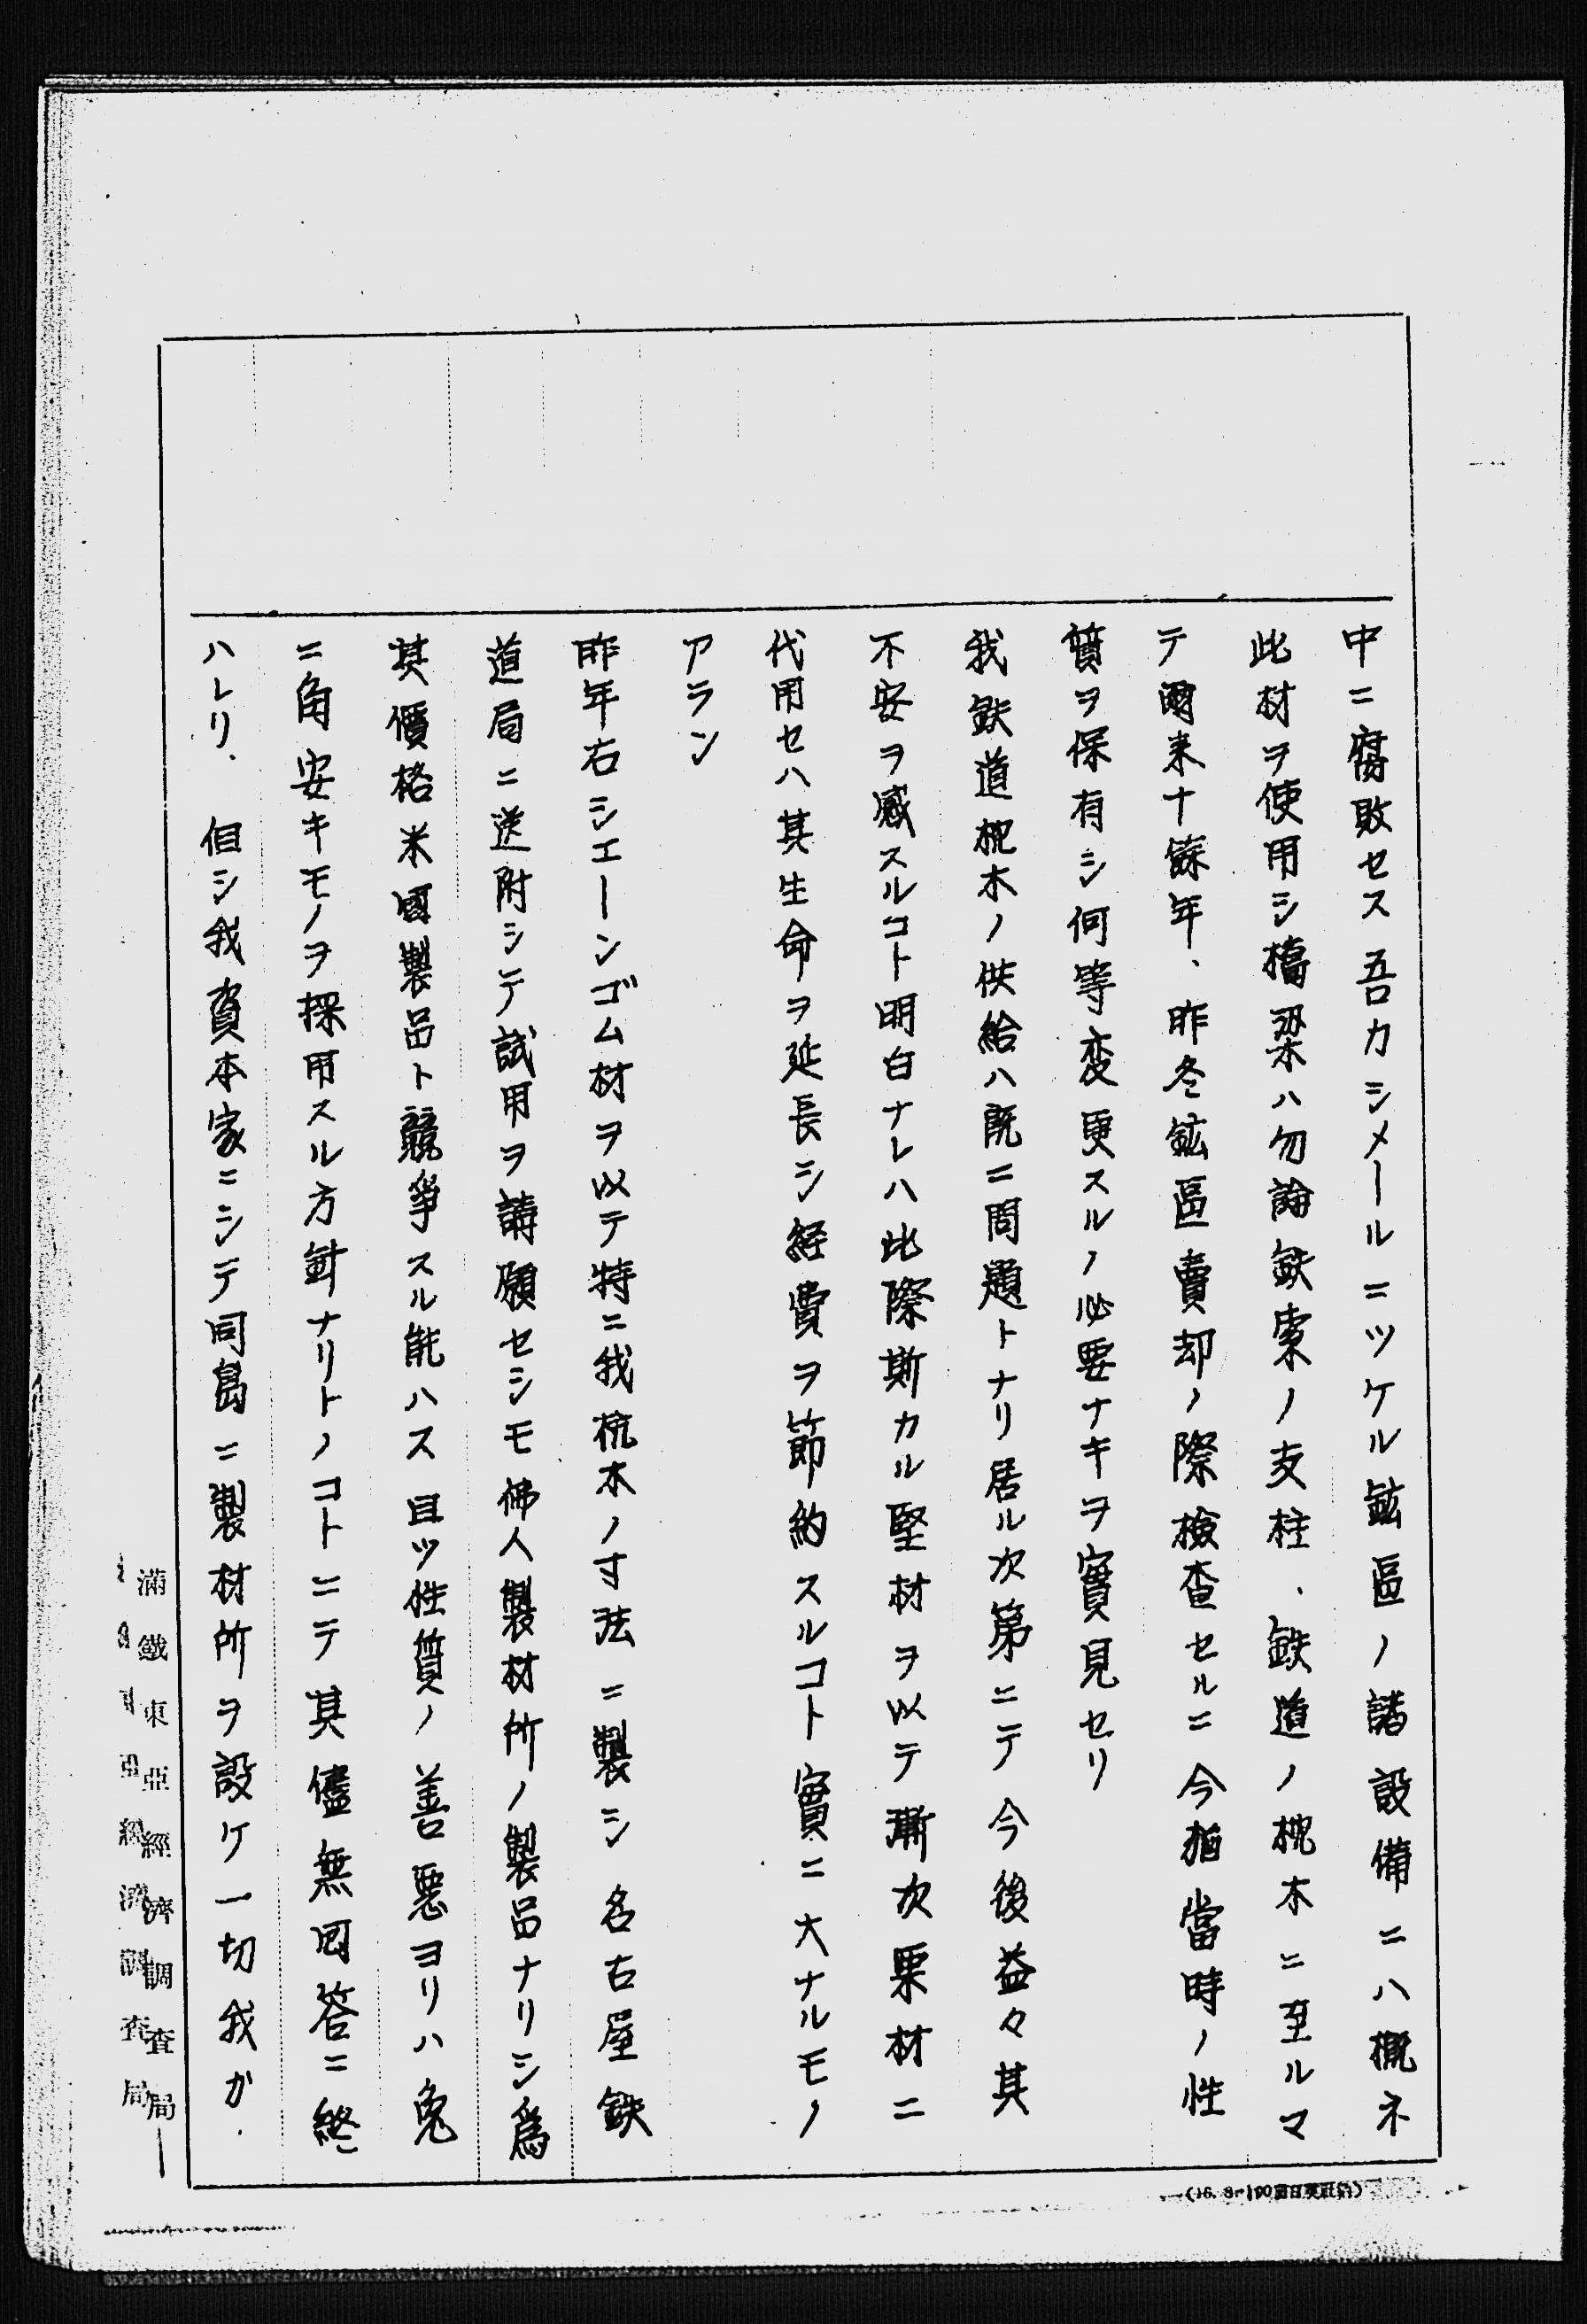 中ニ腐敗セス吾カシメールニツケル鉱區ノ諸設備ニハ概ネ
此材ヲ使用シ橋梁ハ勿論鉄索ノ支柱、鉄道ノ枕木ニ至ルマ
テ爾来十餘年、昨冬鉱區賣却ノ際檢査セルニ今猶當時ノ性
質ヲ保有シ何等変更スルノ必要ナキヲ實見セリ
我鉄道枕木ノ供給ハ既ニ問題トナリ居ル次第ニテ今後益々其
不安ヲ感スルコト明白ナレハ此際斯カル堅材ヲ以テ漸次栗材ニ
代用セハ其生命ヲ延長シ経費ヲ節約スルコト實ニ大ナルモノ
アラン
昨年右シエーンゴム材ヲ以テ特ニ我枕木ノ寸法ニ製シ名古屋鉄
道局ニ送附シテ試用ヲ請願セシモ佛人製材所ノ製品ナリシ爲
其價格米國製品ト競爭スル能ハス且ツ性質ノ善悪ヨリハ兔
ニ角安キモノヲ採用スル方針ナリトノコトニテ其儘無回答ニ終
ハレリ、但シ我資本家ニシテ同島ニ製材所ヲ設ケ一切我が.
滿鐵東亞經濟調査局